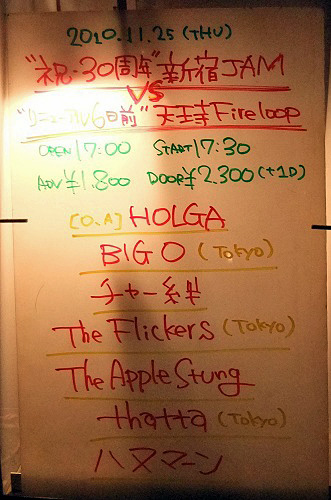 2010.11.25 (THU)
"祝・30周年" 新宿JAM
VS
"リニューアル6日前" 天王寺Fireloop
OPEN 17:00 START 17:30
ADV ¥1.800 DOOR ¥2.300 (+1D)
[O.A] HOLGA
BIG O (Tokyo)
チャー絆
The Flickers (Tokyo)
The Apple Stung
thatta (Tokyo)
ハヌマーン